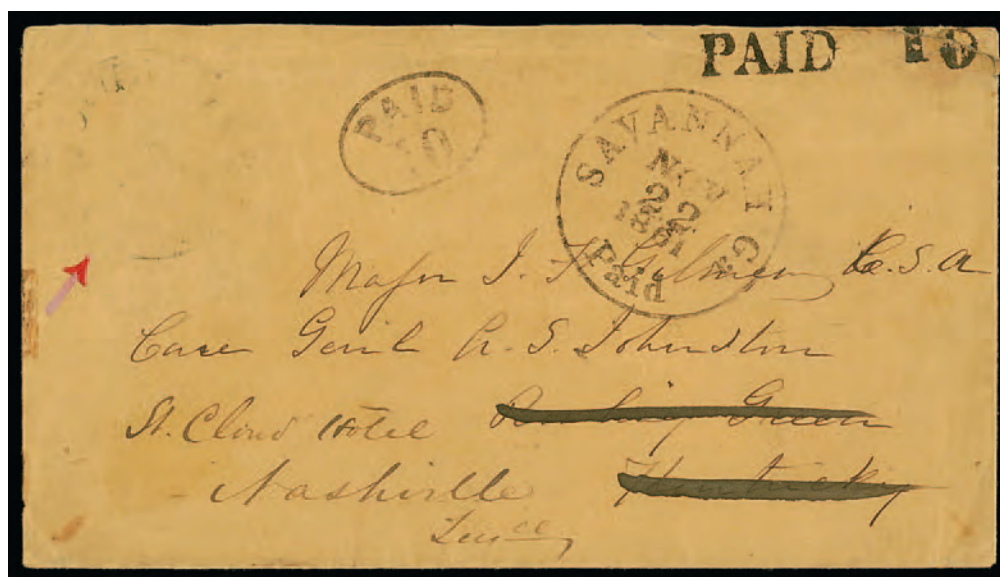 PAID 10
PAID
10
SAVANNAH Ga.
NOV
22
1861
Paid
Major J. F. Gilmer C. S. A
Care Genl A. S. Johnston
St. Cloud Hotel Bowling Green
Nashville Kentucky
Tenee